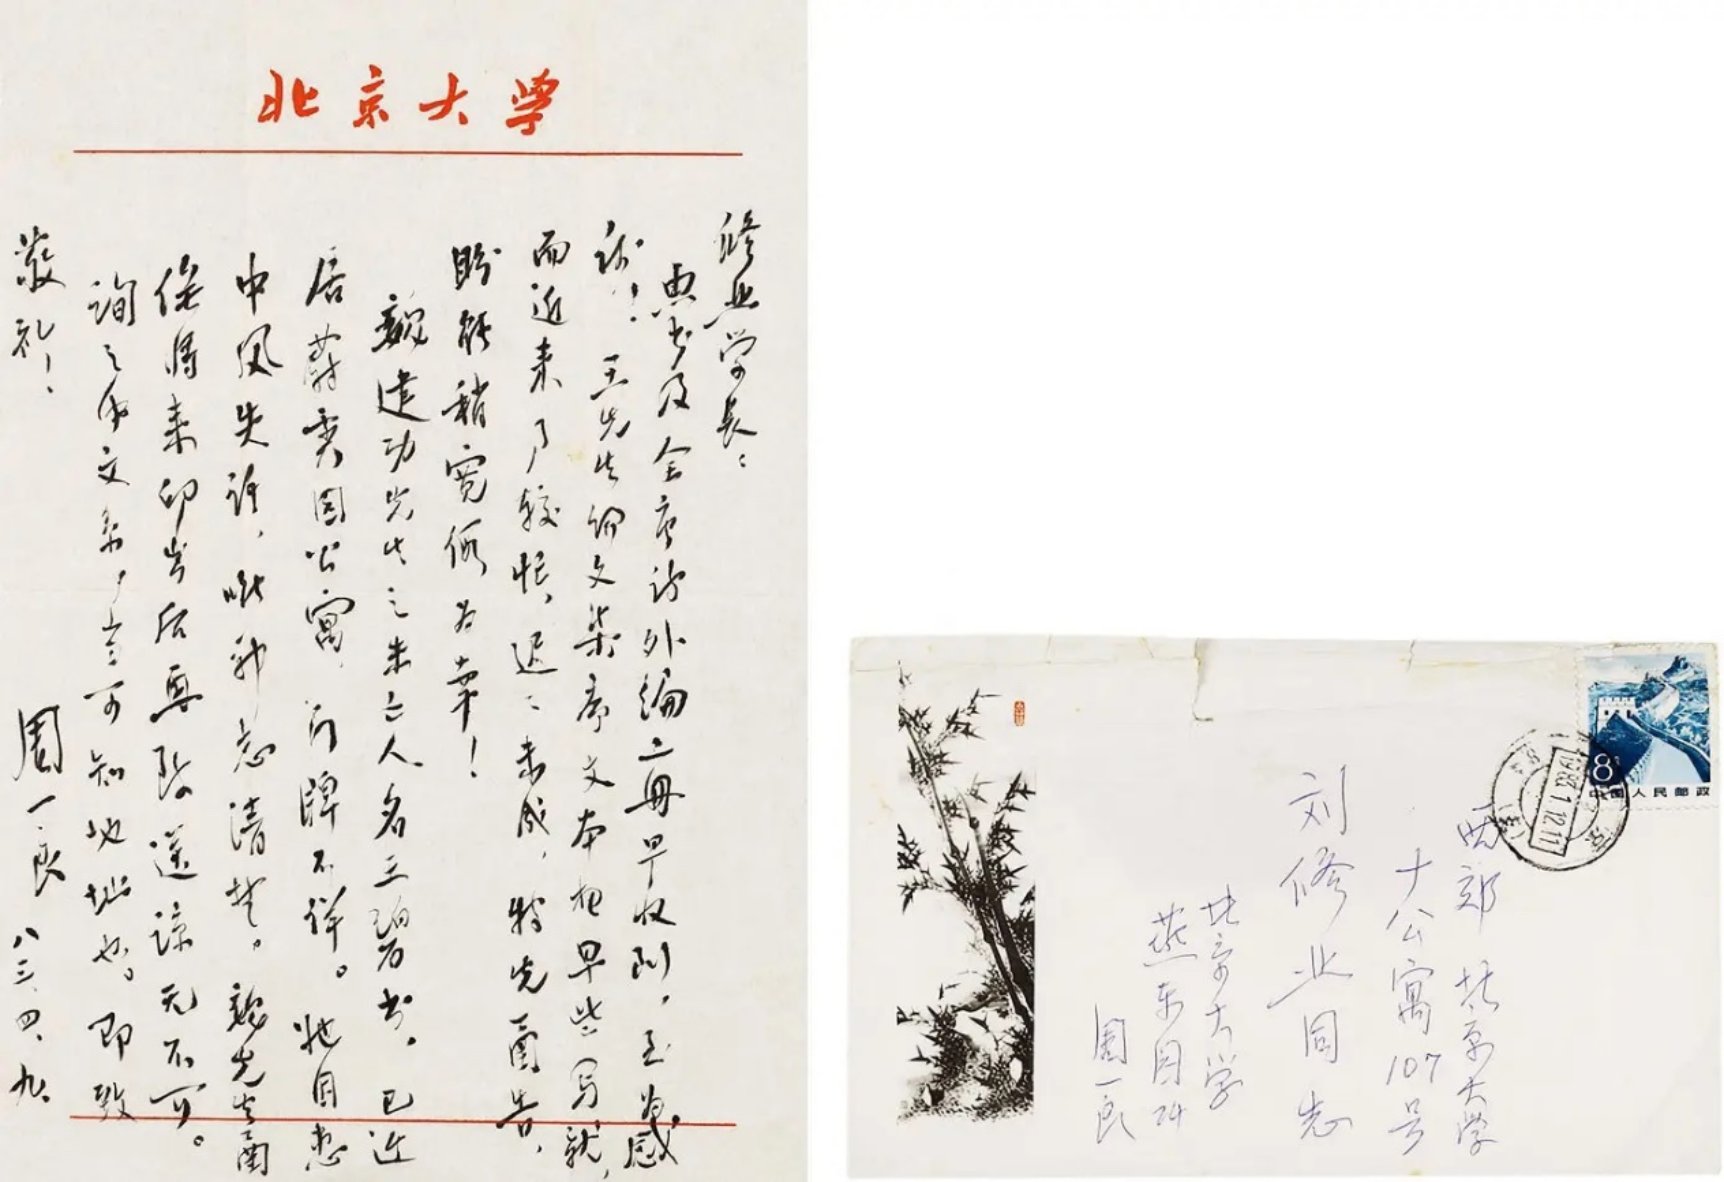 北京大学
修业学长：
惠书及全唐诗外编二册早收到，至为感
谢！王先生论文集序文本想早些写就，
而近来了较忙，迟迟未成，特先函告，
盼能稍宽假为幸！
魏建功先生之未亡人名王碧书。已近
居蔚秀园公寓，门牌不详。她因患
中风失语，唯神志清楚。魏先生南
侯将来印出后再致送谅无不可。
询之中文系，当可知地址也。即致
敬礼！
周一良
八三、四、九、
8
中国人民邮政
1983.1.12.17
西郊 北京大学
十公寓107号
刘修业同志
北京大学
燕东园24
周一良